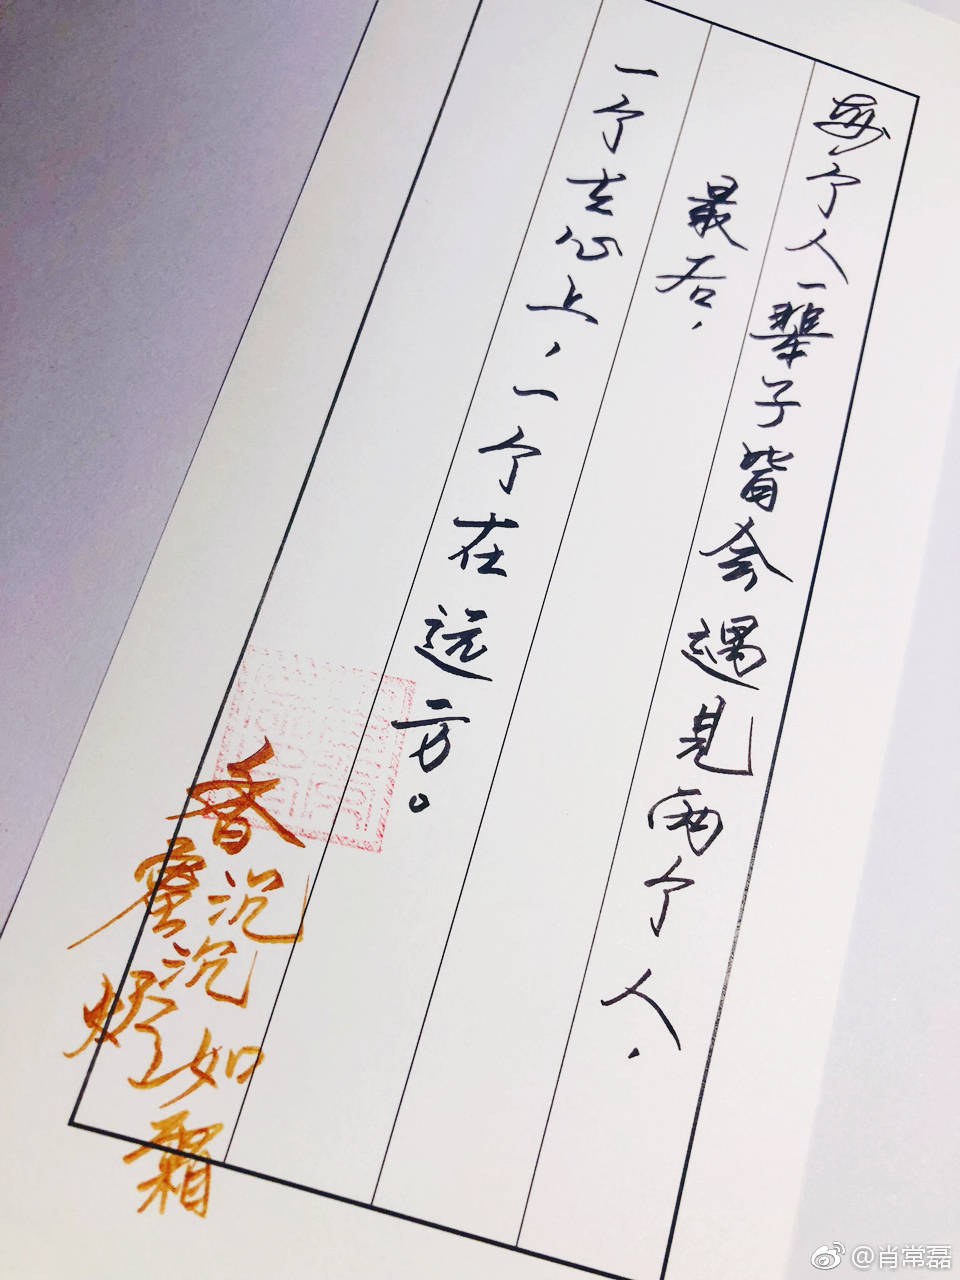 每个人一辈子皆会遇见两个人，
最后，
一个去心上，一个在远方。
香蜜沉沉烬如霜
@肖常磊